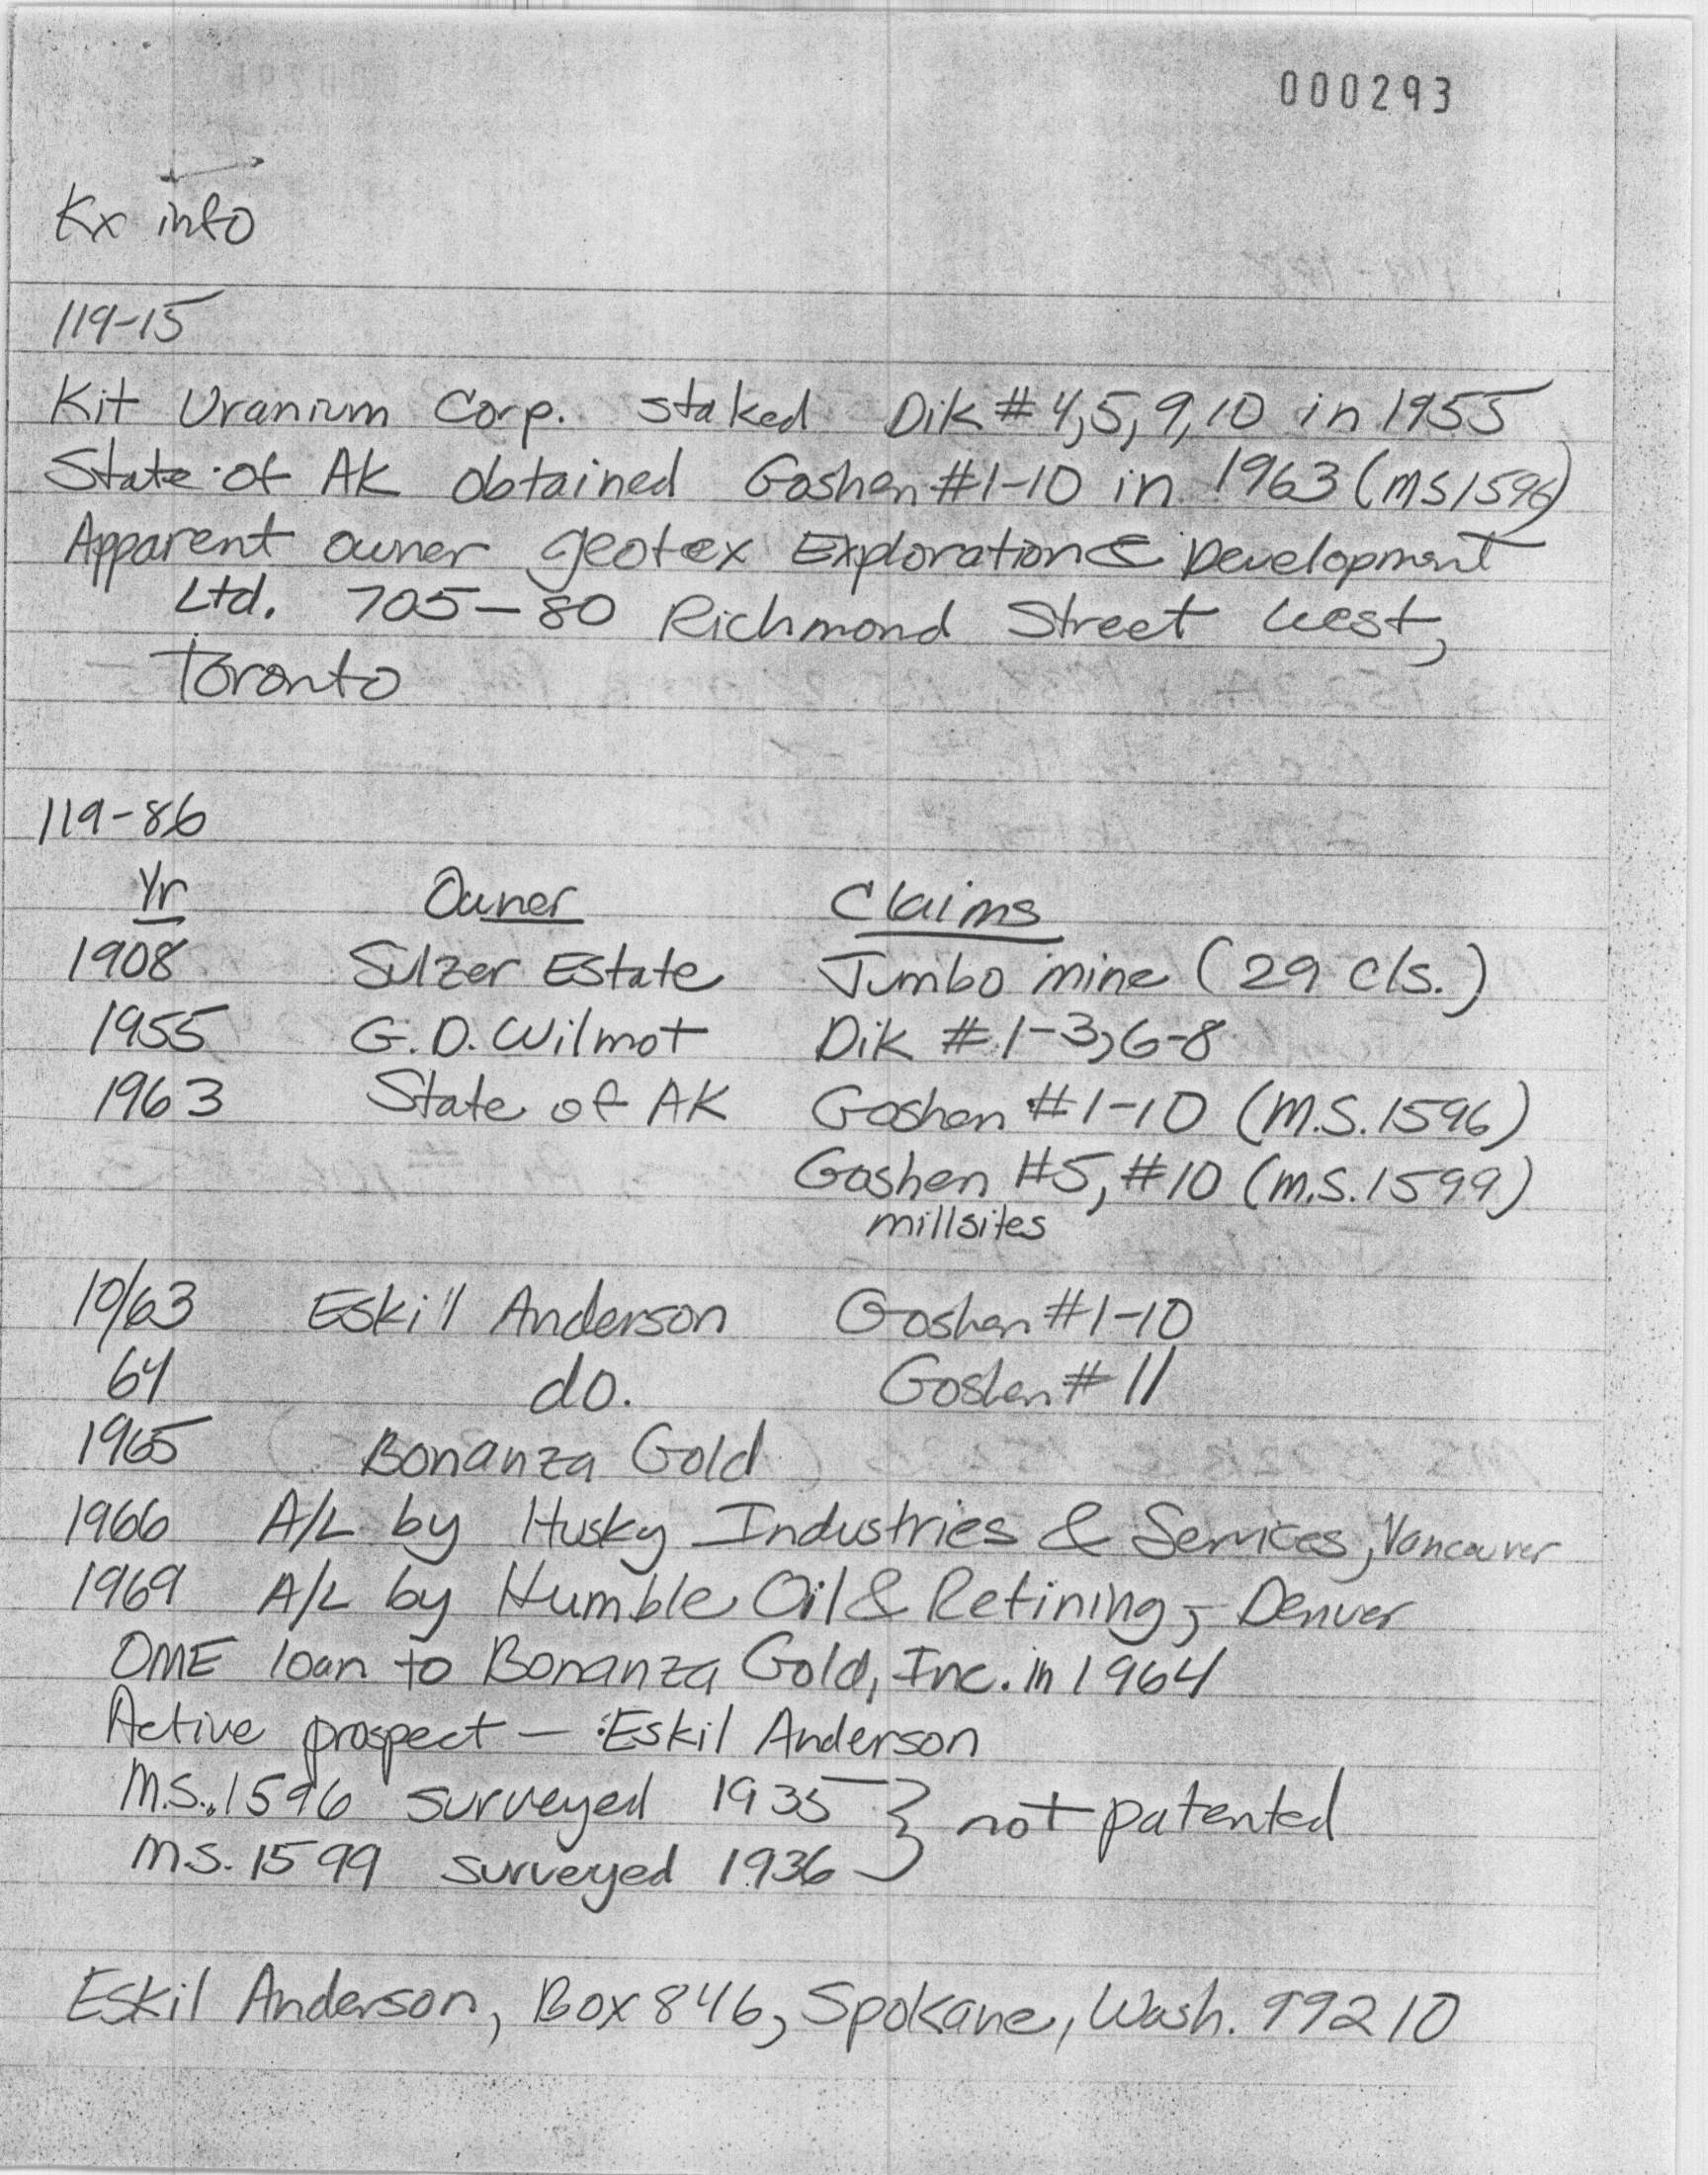 000293
Kx info
119-15
Kit Uranium Corp. staked Dik # 4,5,9,10 in 1955
State of AK obtained Goshen #1-10 in 1963 (MS 1596)
Apparent owner Geotex Exploration & Development
Ltd. 705-80 Richmond Street West,
Toronto
119-86
Yr Owner Claims
1908 Sulzer Estate Jumbo mine (29 cls.)
1955 G.D. Wilmot Dik # 1-3,6-8
1963 State of AK Goshen #1-10 (M.S. 1596)
Goshen #5, #10 (M.S. 1599)
millsites
10/63 Eskill Anderson Goshen #1-10
64 do. Goshen # 11
1965 Bonanza Gold
1966 A/L by Husky Industries & Services, Vancouver
1969 A/L by Humble Oil & Refining, - Denver
OME loan to Bonanza Gold, Inc. in 1964
Active prospect - Eskil Anderson
M.S. 1596 surveyed 1935 } not patented
M.S. 1599 surveyed 1936
Eskil Anderson, Box 846, Spokane, Wash. 99210